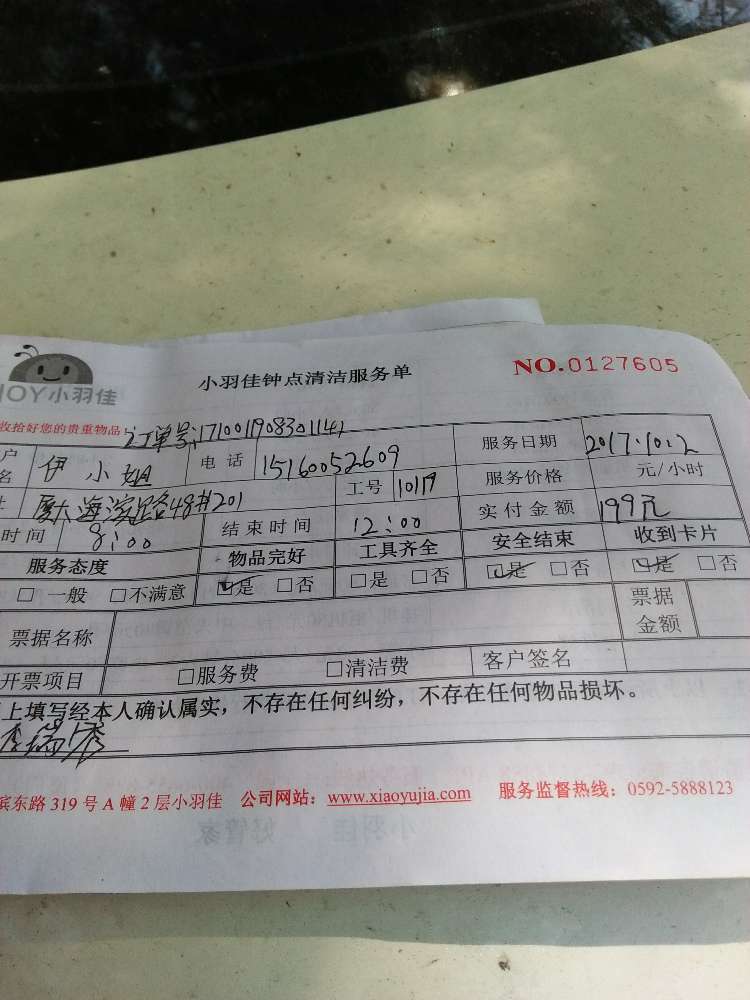 小羽佳钟点清洁服务单
NO.0127605
JOY小羽佳
收拾好您的贵重物品
订单号:171001908301141
户名 伊小姐 电话 15160052609 服务日期 2017.10.2
址 厦大海滨路48#201 工号 10117 服务价格 元/小时
时间 8:00 结束时间 12:00 实付金额 199元
服务态度 物品完好 工具齐全 安全结束 收到卡片
□一般 □不满意 □是 □否 □是 □否 □是 □否 □是 □否
票据名称 票据金额
开票项目 □服务费 □清洁费 客户签名
上填写经本人确认属实，不存在任何纠纷，不存在任何物品损坏。
滨东路 319 号 A 幢 2 层小羽佳 公司网站：www.xiaoyujia.com 服务监督热线：0592-5888123